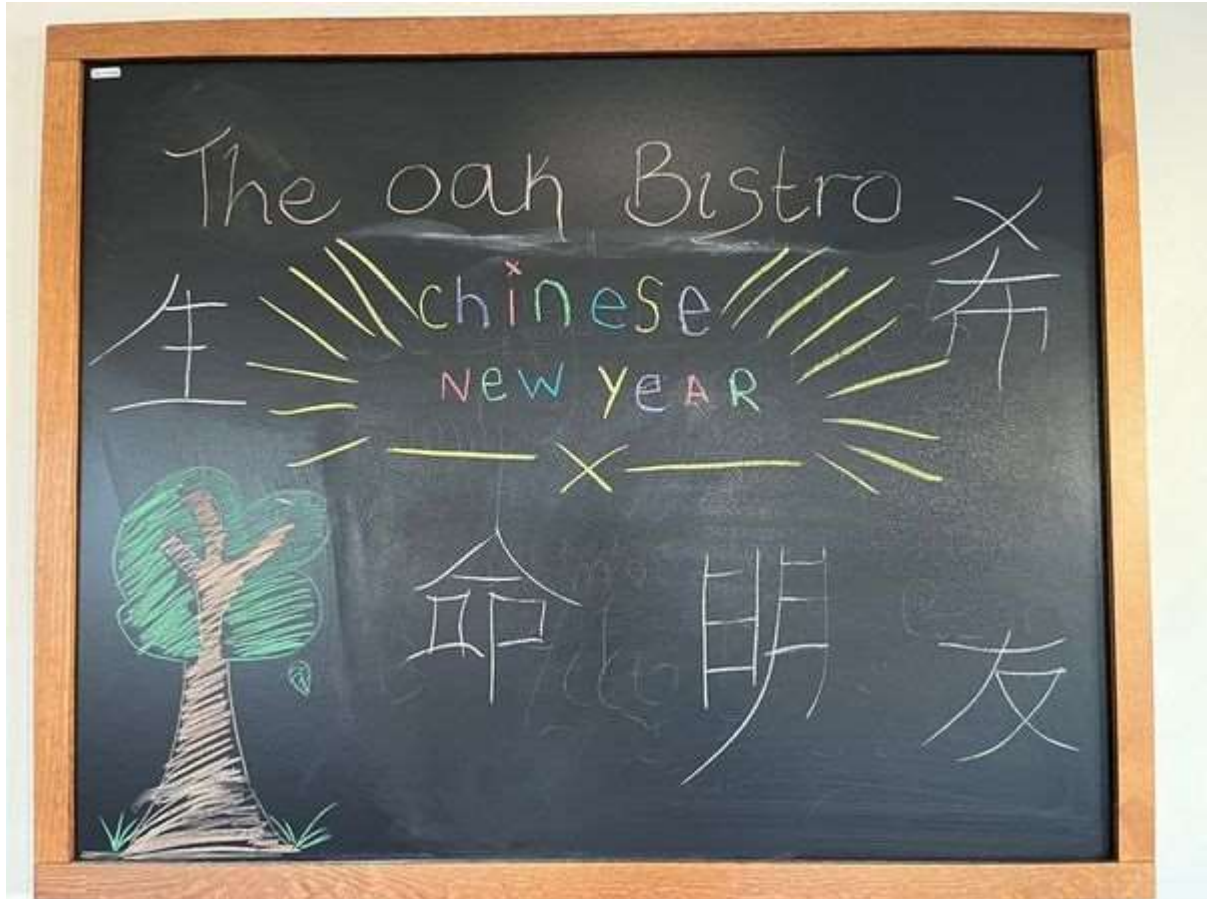 The oak Bistro
chinese
New YeAR
生
希
命
朋
友